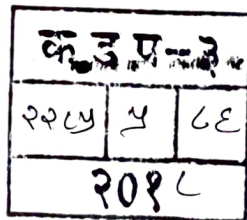 क ड प - ३
२२८५ ५ ८६
२०१८